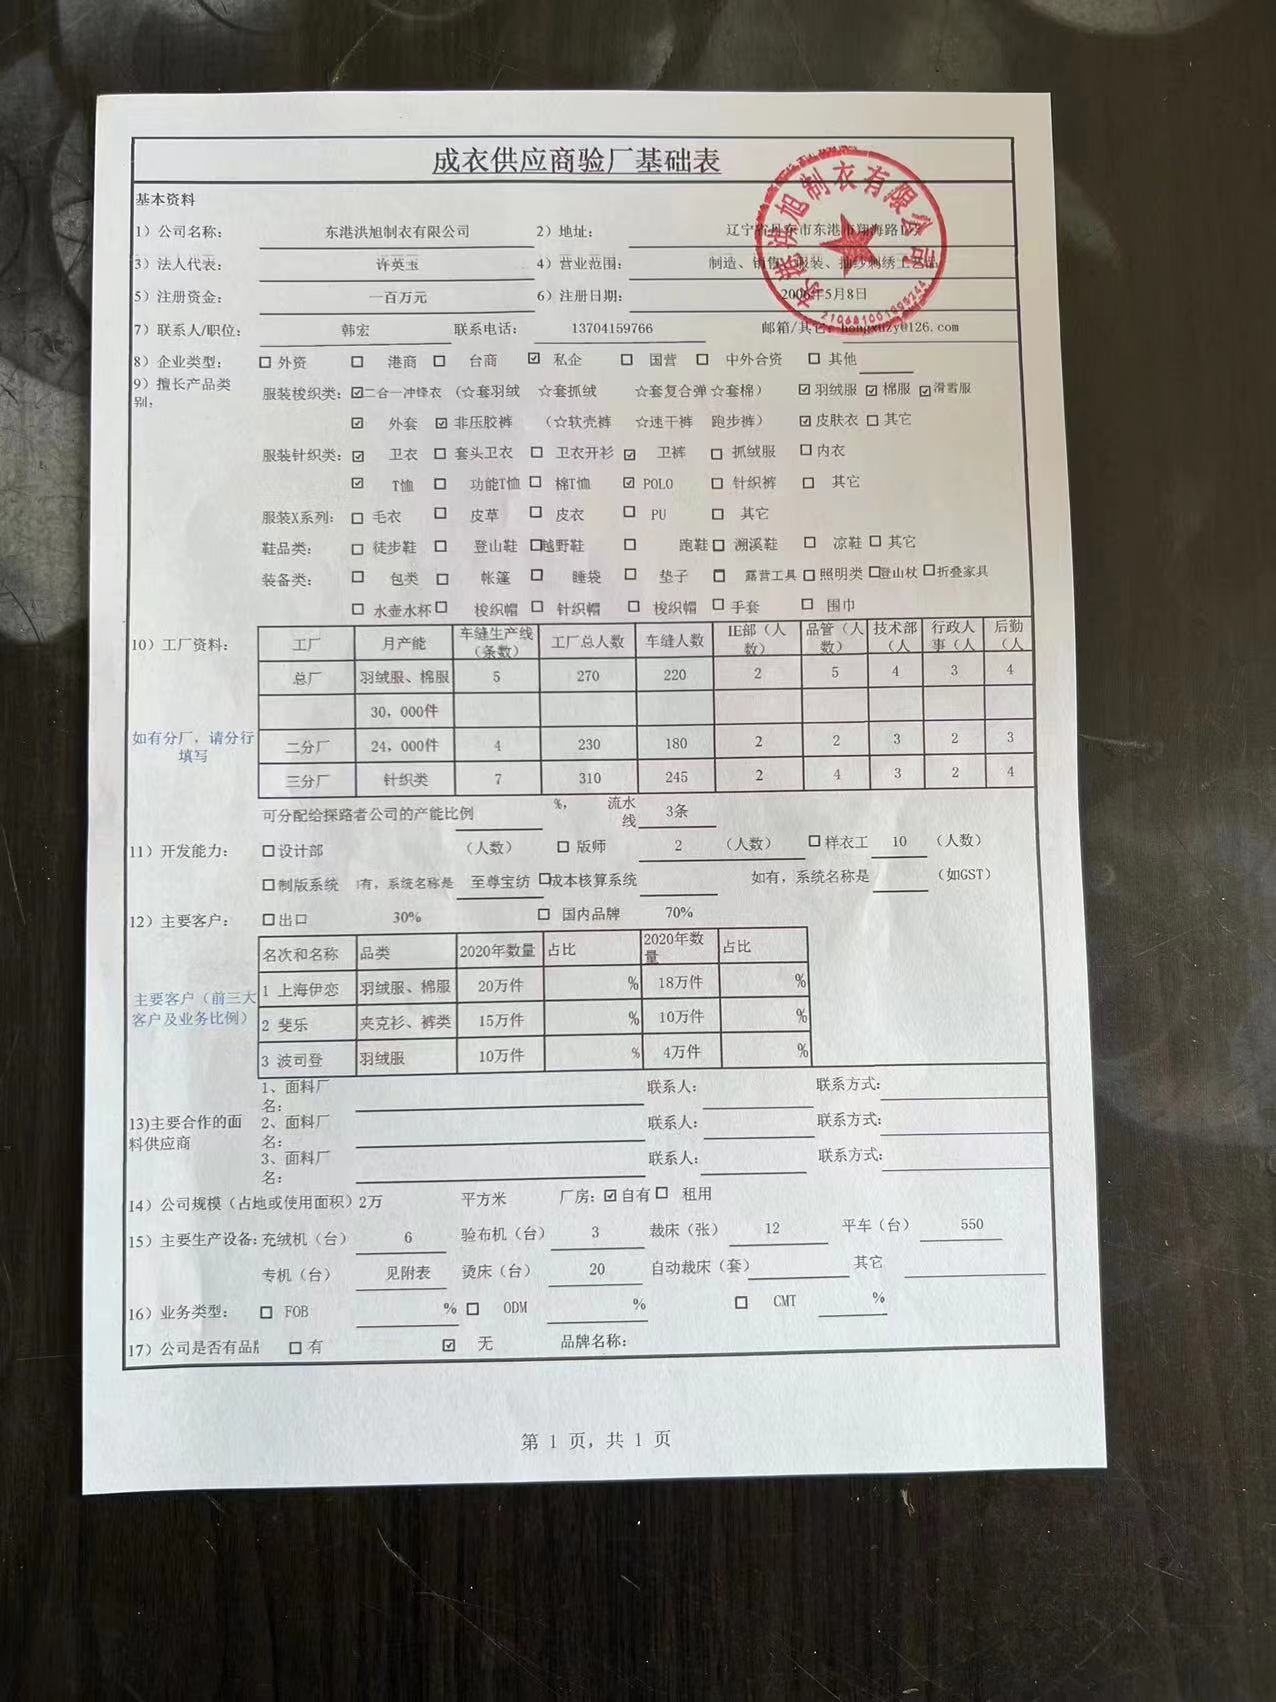 成衣供应商验厂基础表
基本资料
1）公司名称： 东港洪旭制衣有限公司 2）地址： 辽宁省丹东市东港市翔海路
3）法人代表： 许英玉 4）营业范围： 制造、销售：服装、抽纱刺绣工艺品
5）注册资金： 一百万元 6）注册日期： 2006年5月8日
7）联系人/职位： 韩宏 联系电话： 13704159766 邮箱/其它： hongxuzy@126.com
8）企业类型： ☐外资 ☐ 港商 ☐ 台商 ☑ 私企 ☐ 国营 ☐ 中外合资 ☐ 其他
9）擅长产品类别， 服装梭织类： ☑二合一冲锋衣 （☆套羽绒 ☆套抓绒 ☆套复合弹 ☆套棉） ☑羽绒服 ☑棉服 ☑滑雪服
☑ 外套 ☑非压胶裤 （☆软壳裤 ☆速干裤 跑步裤） ☑皮肤衣 ☐其它
服装针织类： ☑ 卫衣 ☐ 套头卫衣 ☐ 卫衣开衫 ☑ 卫裤 ☐ 抓绒服 ☐内衣
☑ T恤 ☐ 功能T恤 ☐ 棉T恤 ☑ POLO ☐ 针织裤 ☐ 其它
服装X系列： ☐ 毛衣 ☐ 皮草 ☐ 皮衣 ☐ PU ☐ 其它
鞋品类： ☐ 徒步鞋 ☐ 登山鞋 ☐越野鞋 ☐ 跑鞋 ☐ 溯溪鞋 ☐ 凉鞋 ☐ 其它
装备类： ☐ 包类 ☐ 帐篷 ☐ 睡袋 ☐ 垫子 ☐ 露营工具 ☐照明类 ☐登山杖 ☐折叠家具
☐ 水壶水杯 ☐ 梭织帽 ☐ 针织帽 ☐ 梭织帽 ☐手套 ☐ 围巾
10）工厂资料： 工厂 月产能 车缝生产线（条数） 工厂总人数 车缝人数 IE部（人数） 品管（人数） 技术部（人 行政人事（人 后勤（人
总厂 羽绒服、棉服 5 270 220 2 5 4 3 4
30，000件
如有分厂，请分行填写
二分厂 24，000件 4 230 180 2 2 3 2 3
三分厂 针织类 7 310 245 2 4 3 2 4
可分配给探路者公司的产能比例 %， 流水线 3条
11）开发能力： ☐设计部 （人数） ☐ 版师 2 （人数） ☐样衣工 10 （人数）
☐制版系统 有，系统名称是 至尊宝纺 ☐成本核算系统 如有，系统名称是 （如GST）
12）主要客户： ☐出口 30% ☐ 国内品牌 70%
名次和名称 品类 2020年数量 占比 2020年数量 占比
主要客户（前三大客户及业务比例）
1 上海伊恋 羽绒服、棉服 20万件 % 18万件 %
2 斐乐 夹克衫、裤类 15万件 % 10万件 %
3 波司登 羽绒服 10万件 % 4万件 %
13)主要合作的面料供应商
1、面料厂名： 联系人： 联系方式：
2、面料厂名： 联系人： 联系方式：
3、面料厂名： 联系人： 联系方式：
14）公司规模（占地或使用面积）2万 平方米 厂房：☑自有 ☐ 租用
15）主要生产设备：充绒机（台） 6 验布机（台） 3 裁床（张） 12 平车（台） 550
专机（台） 见附表 烫床（台） 20 自动裁床（套） 其它
16）业务类型： ☐ FOB % ☐ ODM % ☐ CMT %
17）公司是否有品牌 ☐ 有 ☑ 无 品牌名称：
第 1 页，共 1 页
东港洪旭制衣有限公司